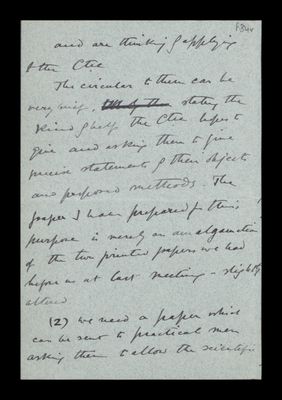 and are thinking of applying
to the Ctee
The circular to them can be
very brief, stating the
kind of help the Ctee hopes to
give and asking them to give
precise statements of their objects
and proposed methods. The
paper I have prepared for this
purpose is merely an amalgamation
of the two printed papers we had
before us at last meeting - slightly
altered
(2) we need a paper which
can be sent to practical men
asking them to allow the scientific